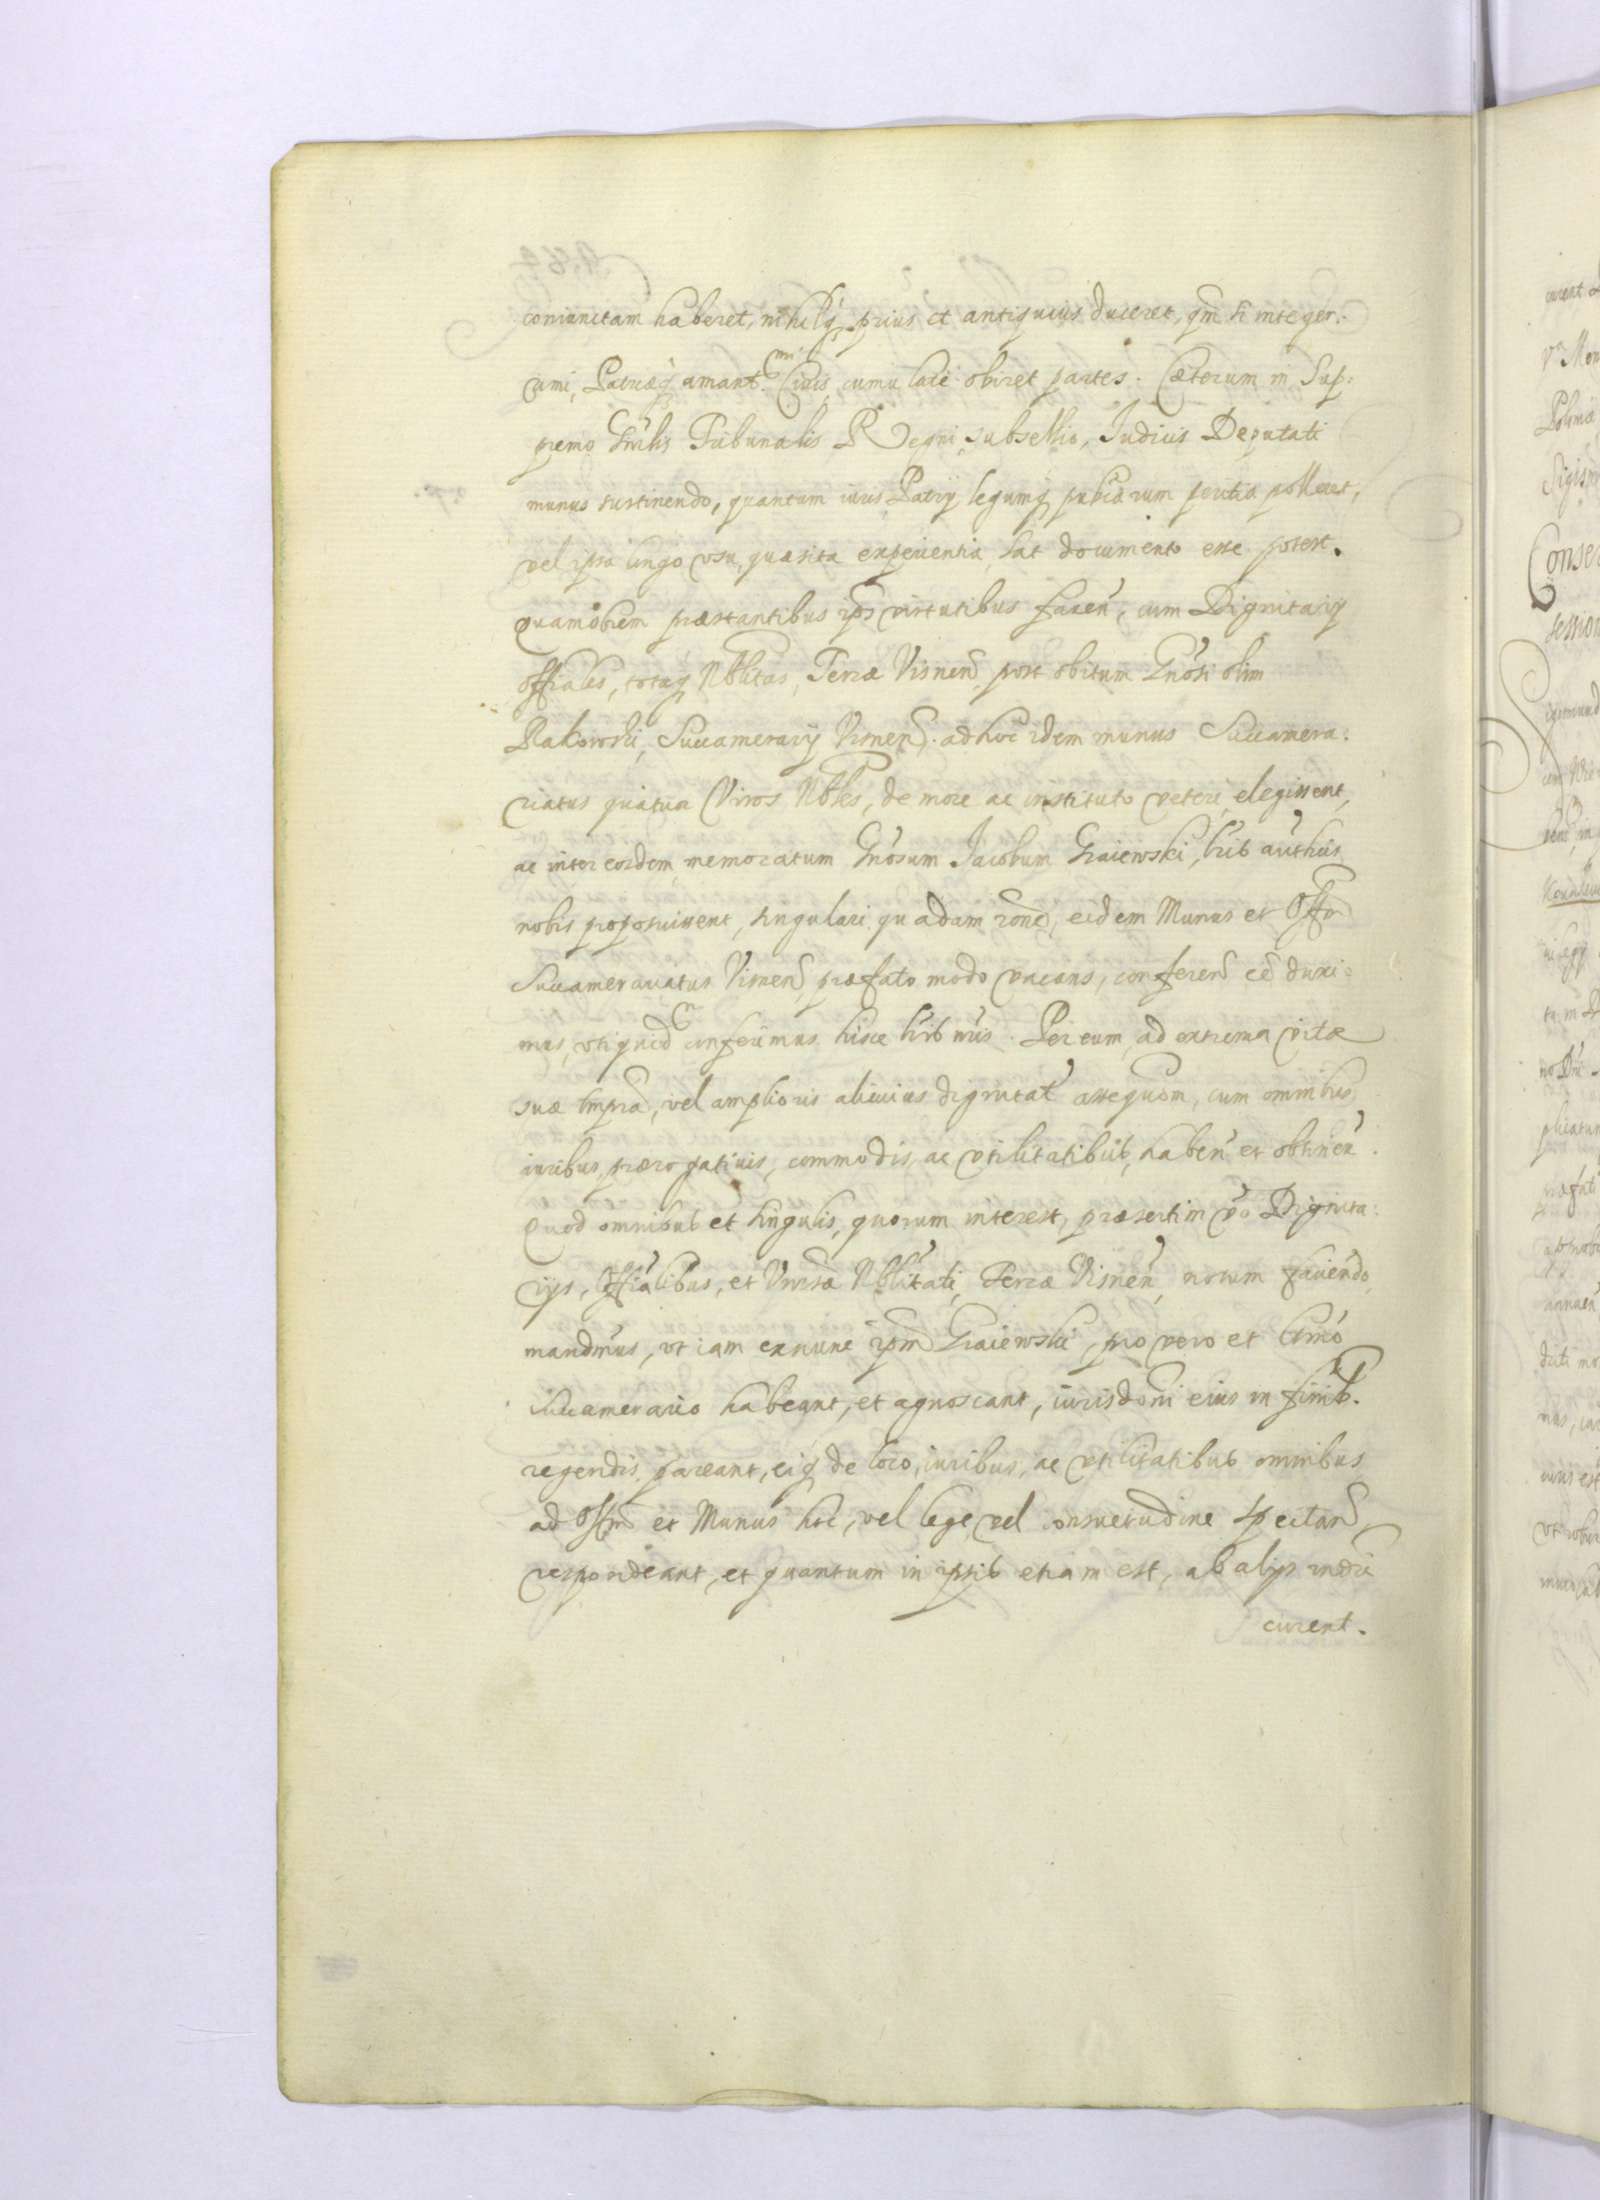 coniunctam haberet, nihilq prius et antiquius duceret, qm si integer:
rimi, Patriæq amantmi Civis, cumulate obiret partes. Cæterum in Sup:
premo Gnrlis Tribunalis Regni subsellio, Iudicis Deputati
munus sustinendo, quantum iuris Patrij legumq publcarum peritia polleret,
vel ipsa longo vsu quæsita experientia, sat documento esse potest.
Quamobrem præstantibus ips virtutibus faven, cum Dignitarij
Offiales, totaq Nblitas, Terræ Visnen, post obitum Gnosi olim
Rakowski, Succamerarij Visnen. ad hoc idem munus Succamera:
riatus quatuor Viros Nbles, de more ac instituto veteri, elegissent,
ac inter eosdem memoratum Gnosum Iacobum Graiewski, lrib authcis
nobis proposuissent, singulari quadam rone, eidem Munus et Offm
Succamerariatus Visnen, præfato modo vacans, conferen ee duxi:
mus, vti quidem conferimus hisce lrib nris. Per eum ad extrema vitæ
suæ tmpra, vel amplioris alicuius dignitat assequom, cum omnibus
iuribus, prærogativis, commodis, ac vtilitatibus, haben et obtinen.
Quod omnibus et singulis, quorum interest, præsertim vo Dignita:
rijs, Offialibus, et Vnrsæ Nblitati, Terræ Visnen, notum faciendo,
mandmus, vt iam ex nunc ipm Graiewski, pro vero et ltimo
Succamerario habeant, et agnoscant, iurisdoni eius in finib.
regendis, pareant, eiq de loco, iuribus, ac vtilitatibus omnibus
ad Offm et Munus hoc, vel lege vel consuetudine spectan,
respondeant, et quantum in ipsis etiam est, ab alijs rndri
curent.